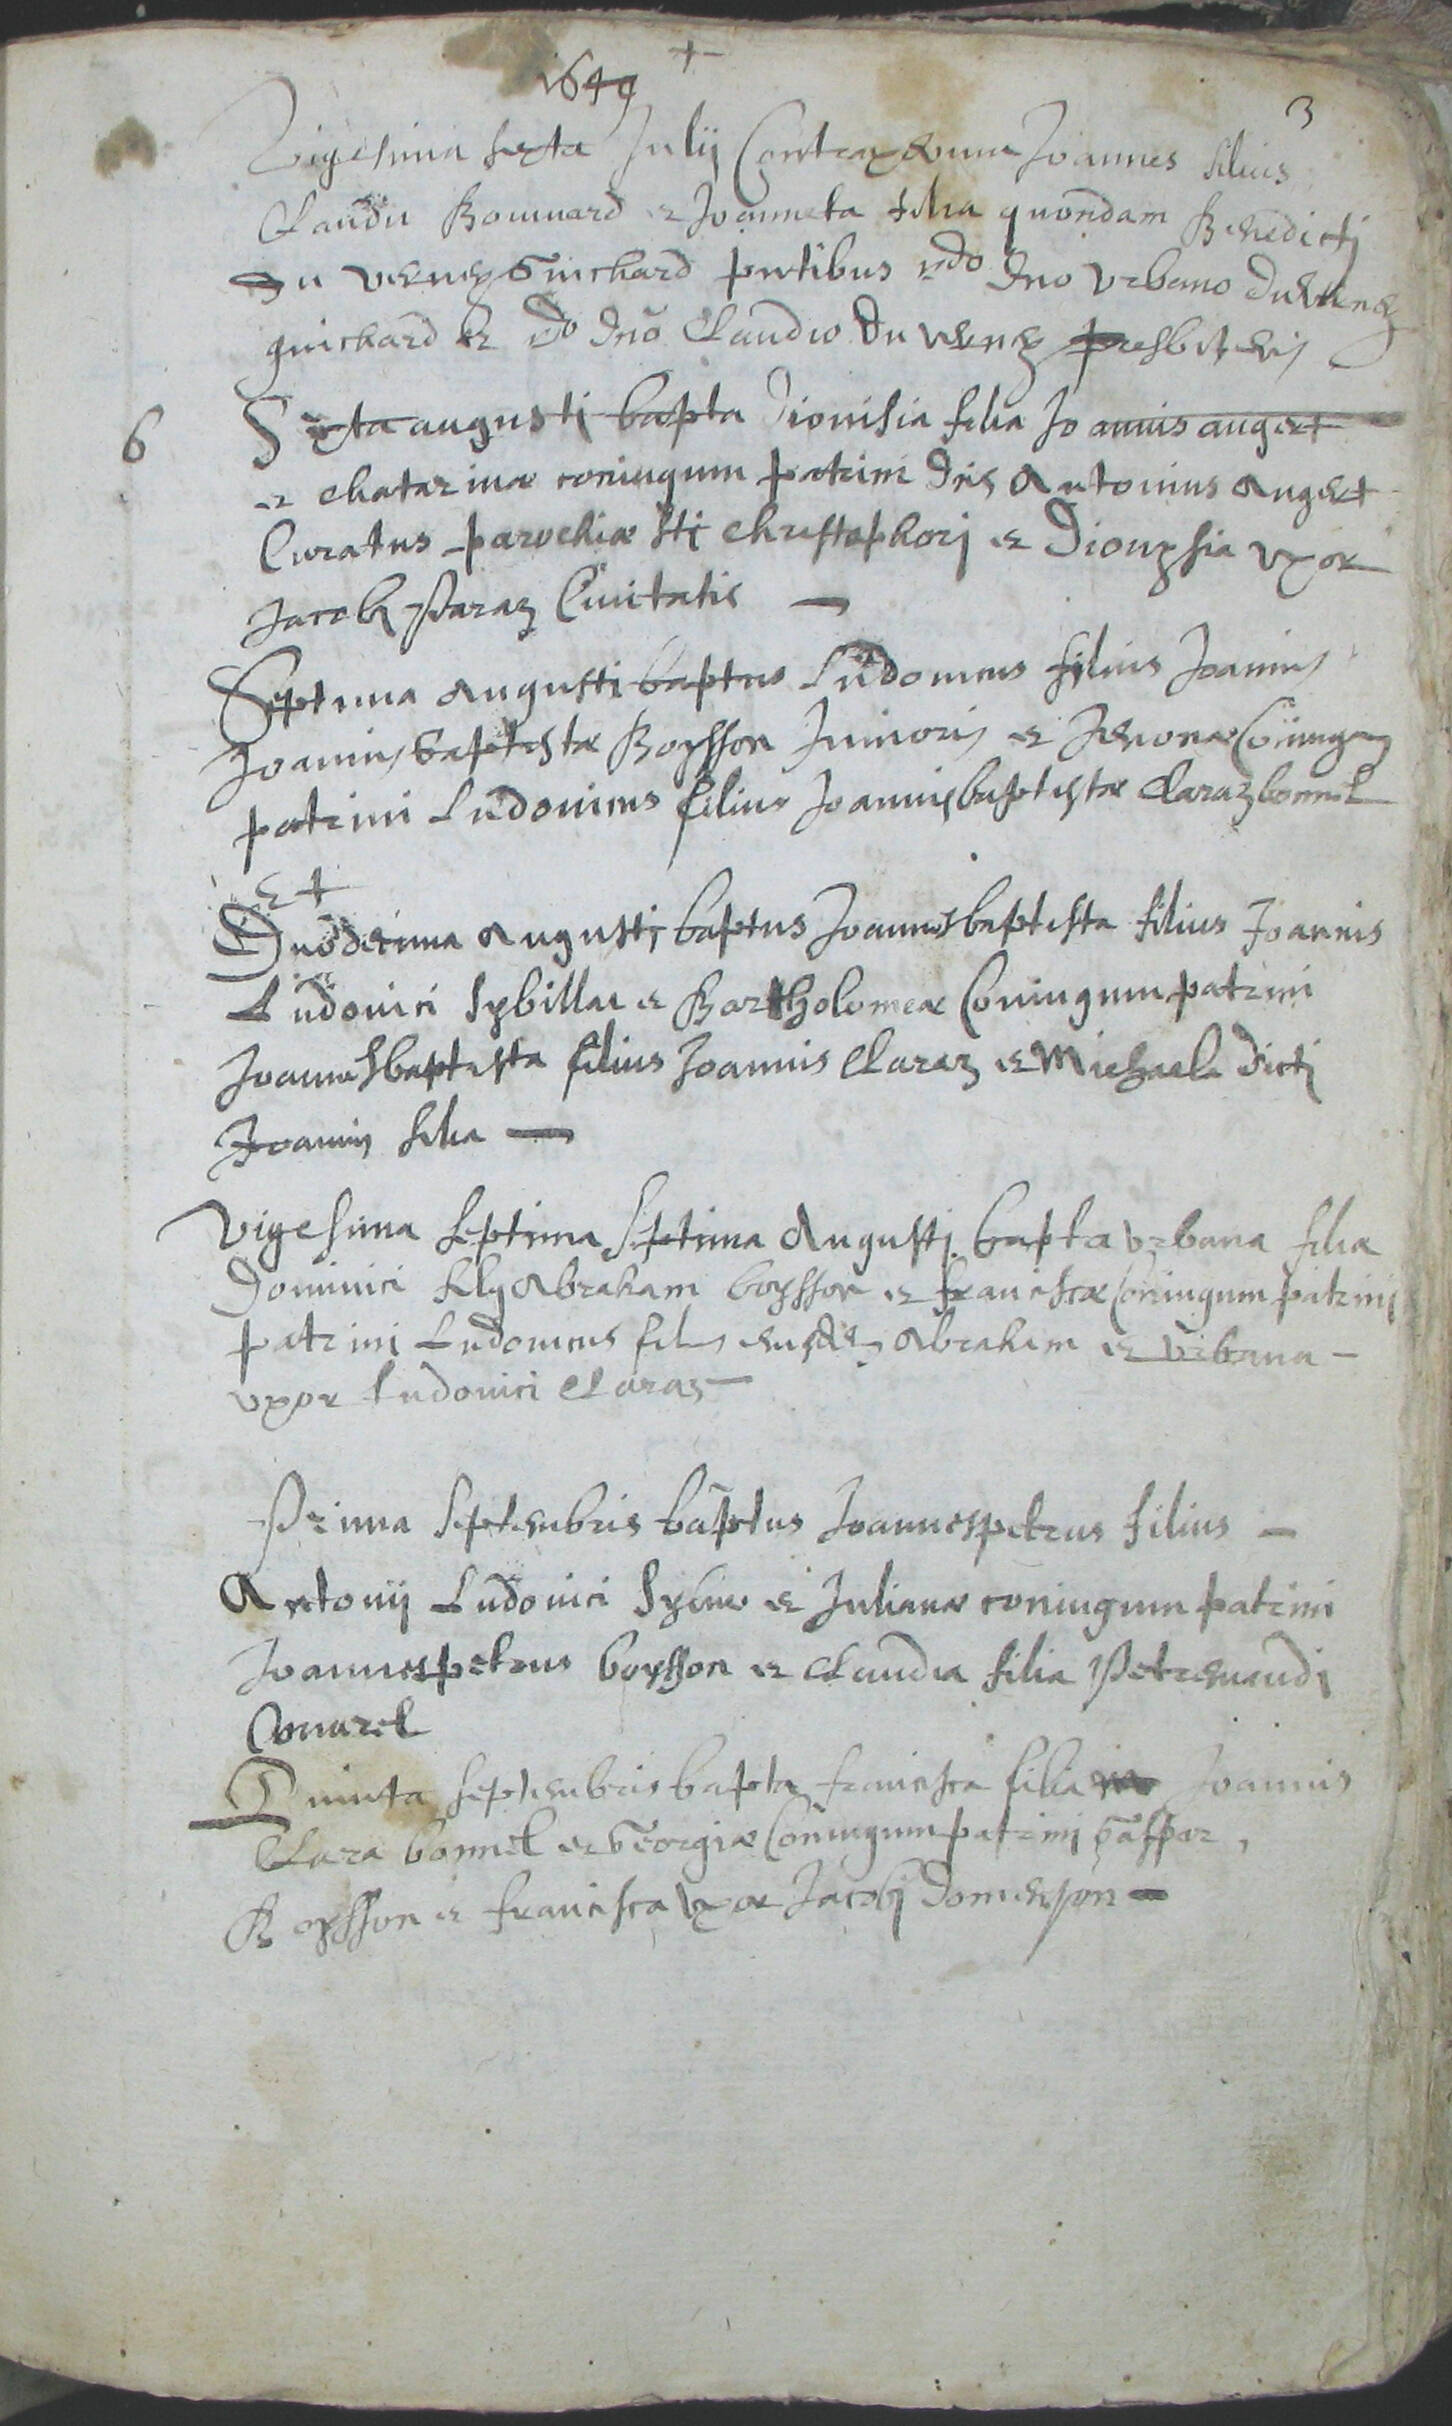 +
1649
3
Vigesima sexta Julij Contraxerunt Joannes filius
Claudii Bonnard et Joanneta filia quondam Benedictj
Du verney Guichard pntibus rdo Dno Vrbano Duverney
guichard et Rdo Dno Claudio Du verney presbiteris
6
Sexta augusti bapta Dionisia filia Joannis augert
et Chatarinæ coniugum patrini Dns Antonius Augert
Curatus parochiæ Sti Christophorj et Dionysia vxor
Jacobi Paraz Ciuitatis
Septima Augusti baptus Ludouicus filius Joannis
Joannis baptistæ Boysson Junioris et Coniugum
patrini Ludouicus filius Joannisbaptistæ Claraz bonnel
et
Duodecima Augusti baptus Joannesbaptista filius Joannis
Ludouici Sybillæ et Bartholomeæ Coniugum patrini
Joannesbaptista filius Joannis Claraz et Michaela dicti
Joannis filia
Vigesima septima Septima Augusti bapta vrbana filia
Dominici filij Abraham boysson et franciscæ Coniugum patrinij
patrini Ludouicus filius eiusdem Abraham et vrbana
vxor Ludouici Claraz
Prima Septembris baptus Joannespetrus filius
Antonij Ludouici et Julianæ coniugum patrini
Joannespetrus boysson et Claudia filia Petremandi
Conuarel
Quinta septembris bapta francisca filia Joannis
Clara bonnel et Georgiæ Coniugum patrinj gaspar
Boysson et francisca Vxor Jacobj Domenson